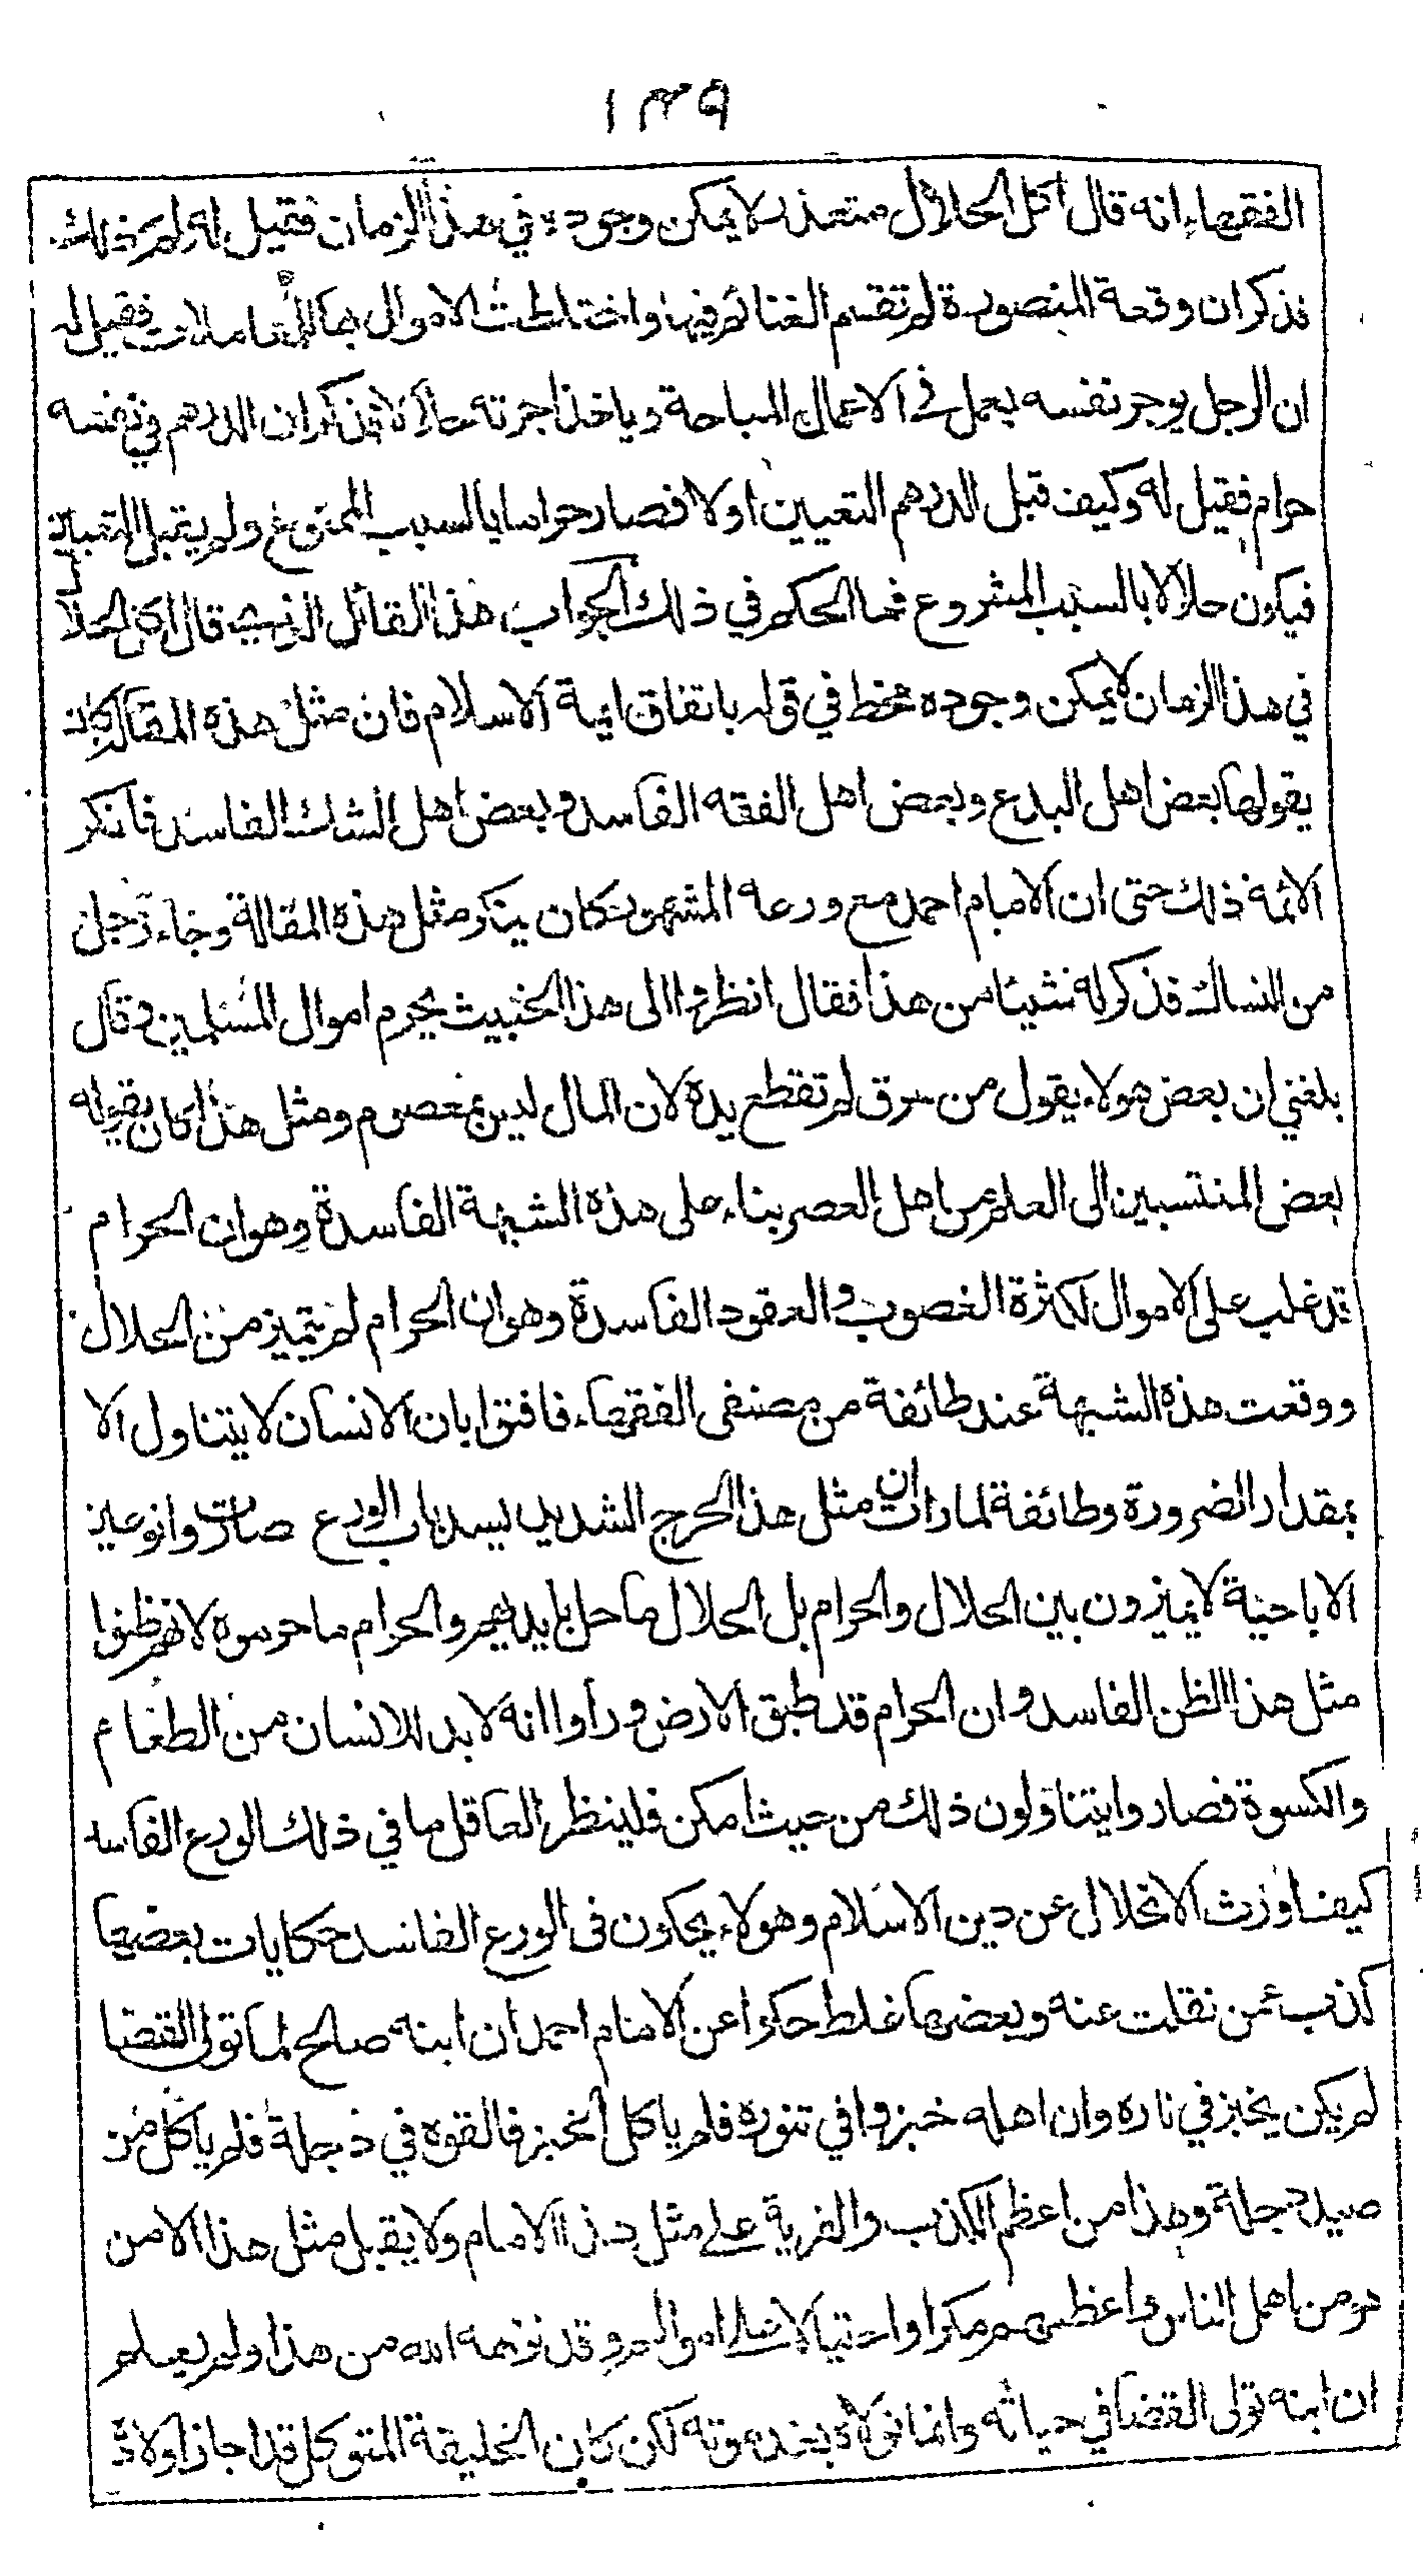 ١٣٩
الفقهاء انه قال اكل الحلال متعذر لا يمكن وجوده في هذا الزمان فقيل له ولم ذلك
فذكر ان وقعة المنصورة لم تقسم الغنائم فيها واختلطت الاموال بالمعاملات فقيل له
ان الرجل يوجر نفسه يعمل في الاعمال المباحة وياخذ اجرته حلالا فذكر ان الدرهم في نفسه
حرام فقيل له وكيف قبل الدرهم التعيين اولا فصار حراما بالسبب الممنوع ولم يقبل التعيين
فيكون حلالا بالسبب المشروع فما الحكم في ذلك الجواب هذا القائل الذي قال اكل الحلال
في هذا الزمان لا يمكن وجوده مخط في قوله باتفاق ايمة الاسلام فان مثل هذه المقالة كان
يقولها بعض اهل البدع وبعض اهل الفقه الفاسد وبعض اهل الشك الفاسد فانكر
الائمة ذلك حتى ان الامام احمد مع ورعه المشهور كان ينكر مثل هذه المقالة وجاء رجل
من النساك فذكر له شيئا من هذا فقال انظروا الى هذا الخبيث يحرم اموال المسلمين وقال
بلغني ان بعض هولاء يقول من سرق لم تقطع يده لان المال ليس بمعصوم ومثل هذا كان يقوله
بعض المنتسبين الى العلم من اهل العصر بناء على هذه الشبهة الفاسدة وهو ان الحرام
قد غلب على الاموال لكثرة الغصوب والعقود الفاسدة وهو ان الحرام لم يتميز من الحلال
ووقعت هذه الشبهة عند طائفة من مصنفى الفقهاء فافتوا بان الانسان لا يتناول الا
بمقدار الضرورة وطائفة لما رات ان مثل هذا الحرج الشديد يسد باب الورع صارت وا نوعين
الاباحية لا يميزون بين الحلال والحرام بل الحلال ما حل بايديهم والحرام ما حرموه لانهم ظنوا
مثل هذا الظن الفاسد وان الحرام قد طبق الارض وراوا انه لا بد للانسان من الطعام
والكسوة فصاروا يتناولون ذلك من حيث امكن فلينظر العاقل ما في ذلك الورع الفاسد
كيف اورث الانحلال عن دين الاسلام وهولاء يحكون فى الورع الفاسد حكايات بعضها
كذب عمن نقلت عنه وبعضها غلط حكوا عن الامام احمد ان ابنه صالح لما تولى القضا
لم يكن يخبز في ناره وان اهله خبزوا في تنوره فلم ياكل الخبز فالقوه في دجلة فلم ياكل من
صيد دجلة وهذا من اعظم الكذب والفرية على مثل هذا الامام ولا يقبل مثل هذا الا من
هو من اهل الناس واعظمهم مكرا واحتيالا اموالهم وقد نزهه الله من هذا ولم يعلم
ان ابنه تولى القضا في حياته وانما تولاه بعد موته لكن كان الخليفة المتوكل قد اجاز اولاده